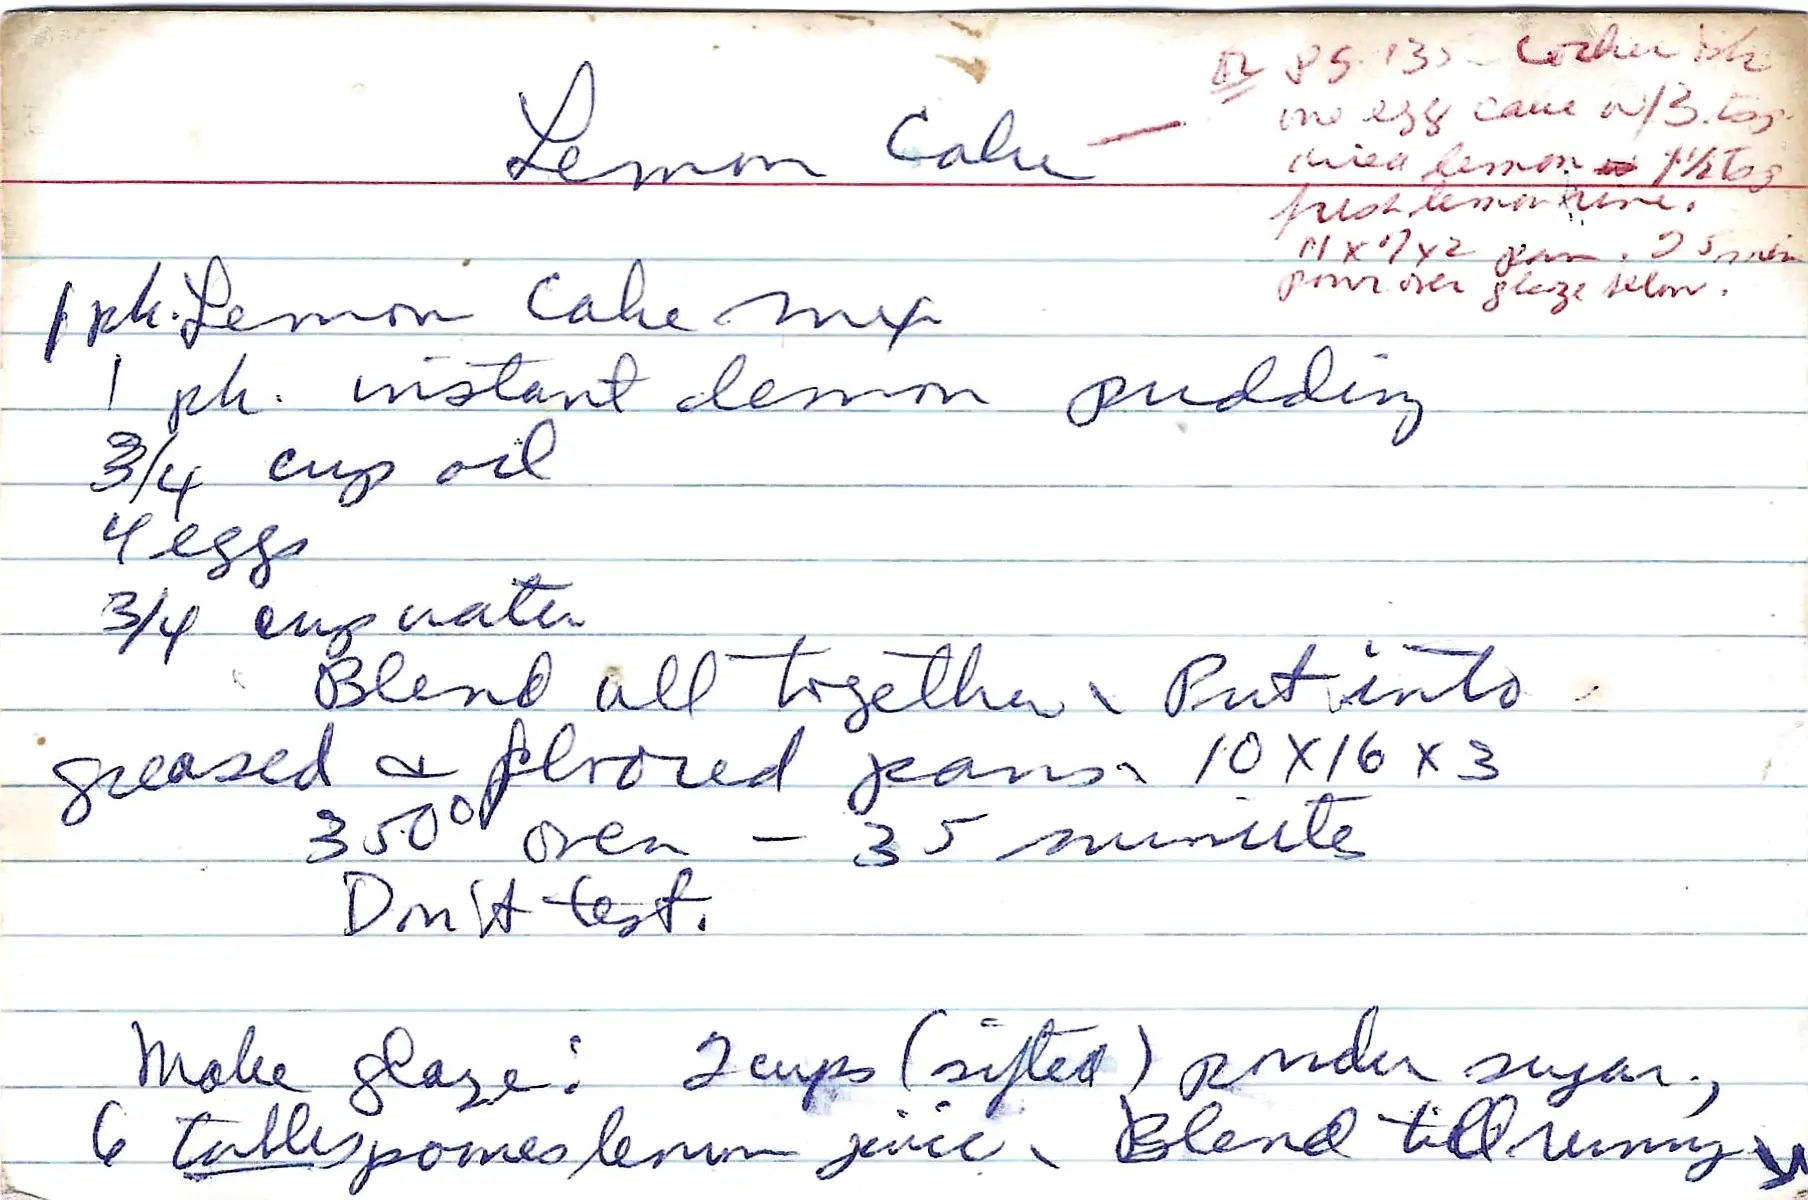 Lemon Cake —
or pg. 135 Cooker bk
one egg cake w/3 tsp
dried lemon or 1 1/2 Tsp
fresh lemon rine.
11 x 7 x 2 pan. 25 min
pour over glaze below.
1 pk. Lemon Cake mix
1 pk. instant lemon pudding
3/4 cup oil
4 eggs
3/4 cup water
Blend all together. Put into
greased & floured pans. 10 X 16 X 3
350° oven – 35 minutes
Don't test.
Make glaze: 2 cups (sifted) powder sugar,
6 tablespoones lemon juice. Blend till runny